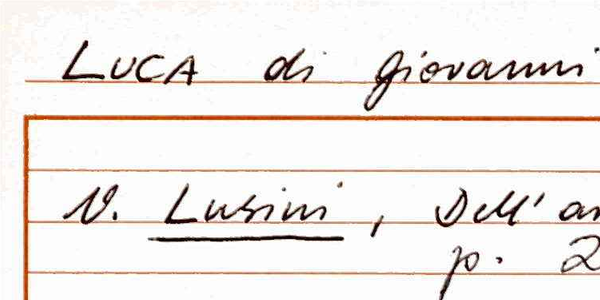 LUCA di Giovanni
V. Lusini, Dell'
p. 2